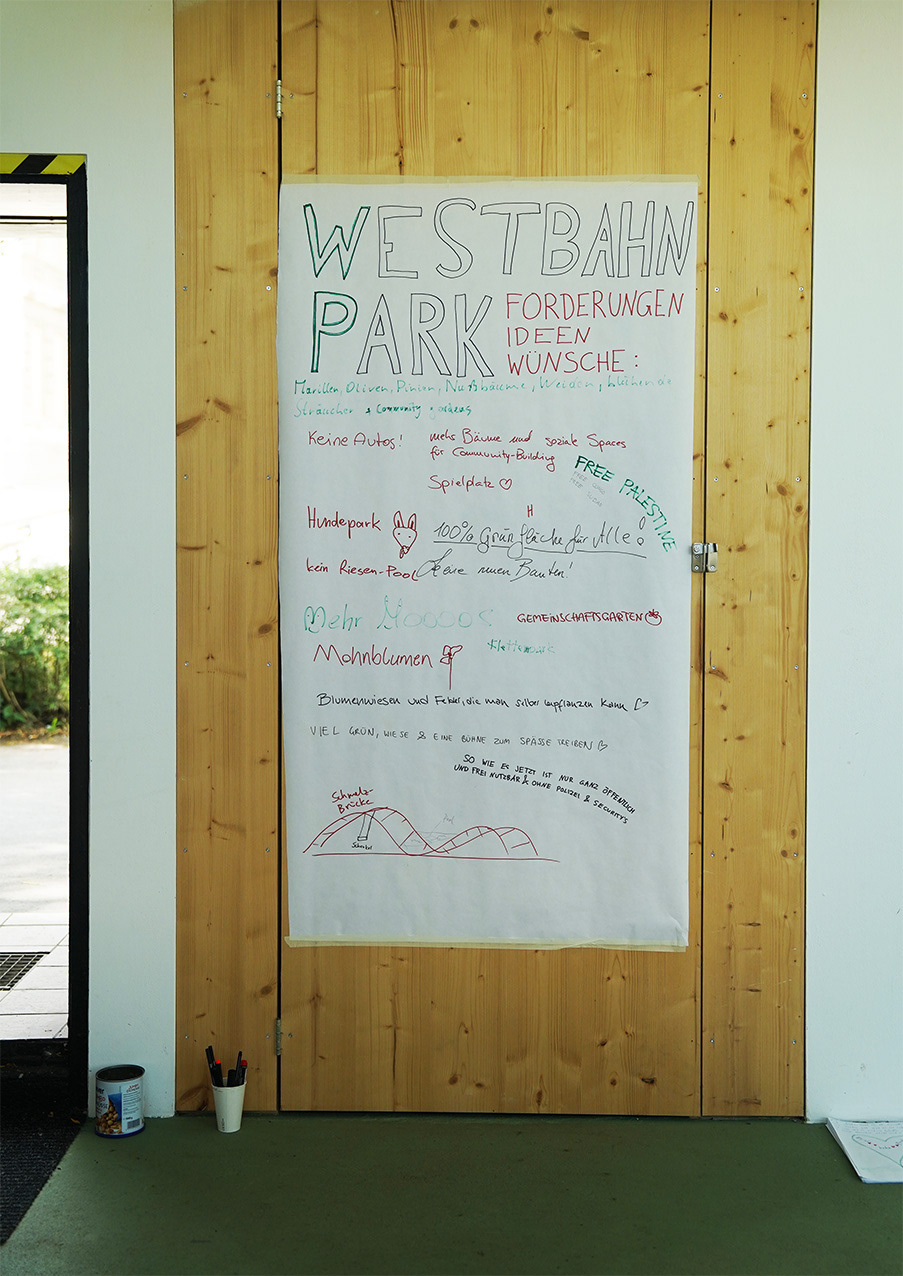 WESTBAHN
PARK
FORDERUNGEN
IDEEN
WÜNSCHE:
Marillen, Oliven, Pinien, Nußbäume, Weiden,
Sträucher + Community gardens
Keine Autos!
mehr Bäume und soziale Spaces
für Community-Building
Spielplatz
FREE PALESTINE
Hundepark
H
100% Grünfläche für Alle!
kein Riesen-Pool
Keine neuen Bauten!
Mehr Mooooos
GEMEINSCHAFTSGARTEN
Kletterpark
Mohnblumen
Blumenwiesen und Felder, die man selber bepflanzen kann
VIEL GRÜN, WIESE & EINE BÜHNE ZUM SPÄSSE TREIBEN
SO WIE ES JETZT IST NUR GANZ ÖFFENTLICH
UND FREI NUTZBAR & OHNE POLIZEI & SECURITYS
Schmelz-
Brücke
Schaukel